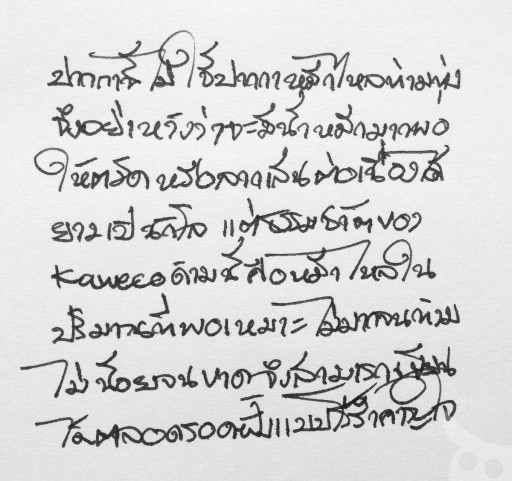 ปากกานี้ไม่ใช่ปากกาหมึกไหลท่วมทุ่ง
จึงอย่าหวังว่าจะมีน้ำหมึกมากพอ
ให้ตวัด หรือลากเส้นต่อเนื่องได้
ยาวเป็น แต่ธรรมชาติของ
Kaweco ด้ามนี้ คือหมึกไหลใน
ปริมาณที่พอเหมาะ ไม่มากจนท่วม
ไม่น้อยจนขาด จึงสามารถเขียน
ได้ตลอดรอดฝั่งแบบไร้รำคาญใจ